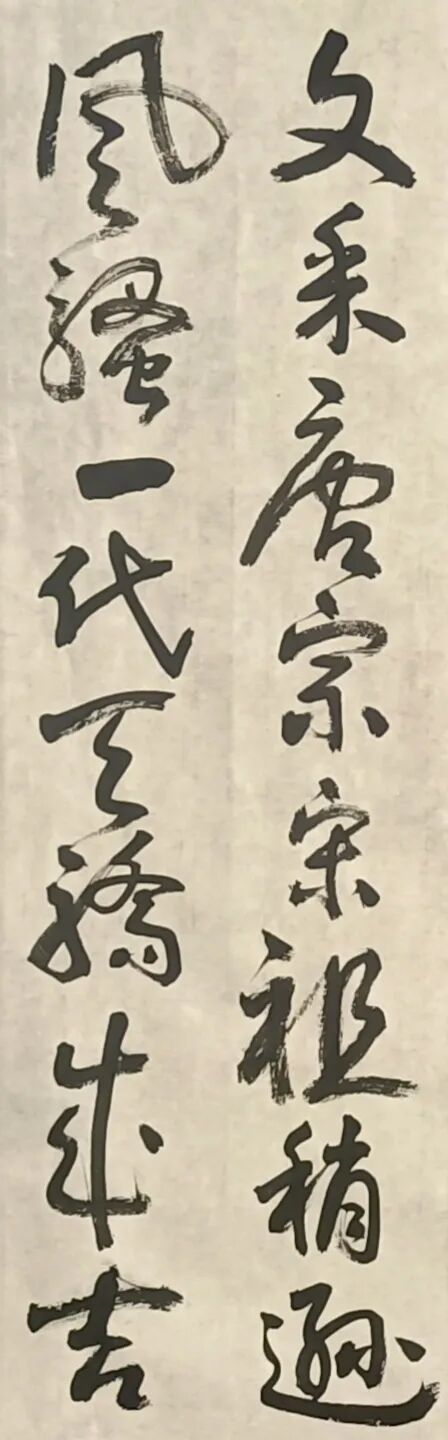 文采唐宗宋祖稍遜
風騷一代天驕成吉